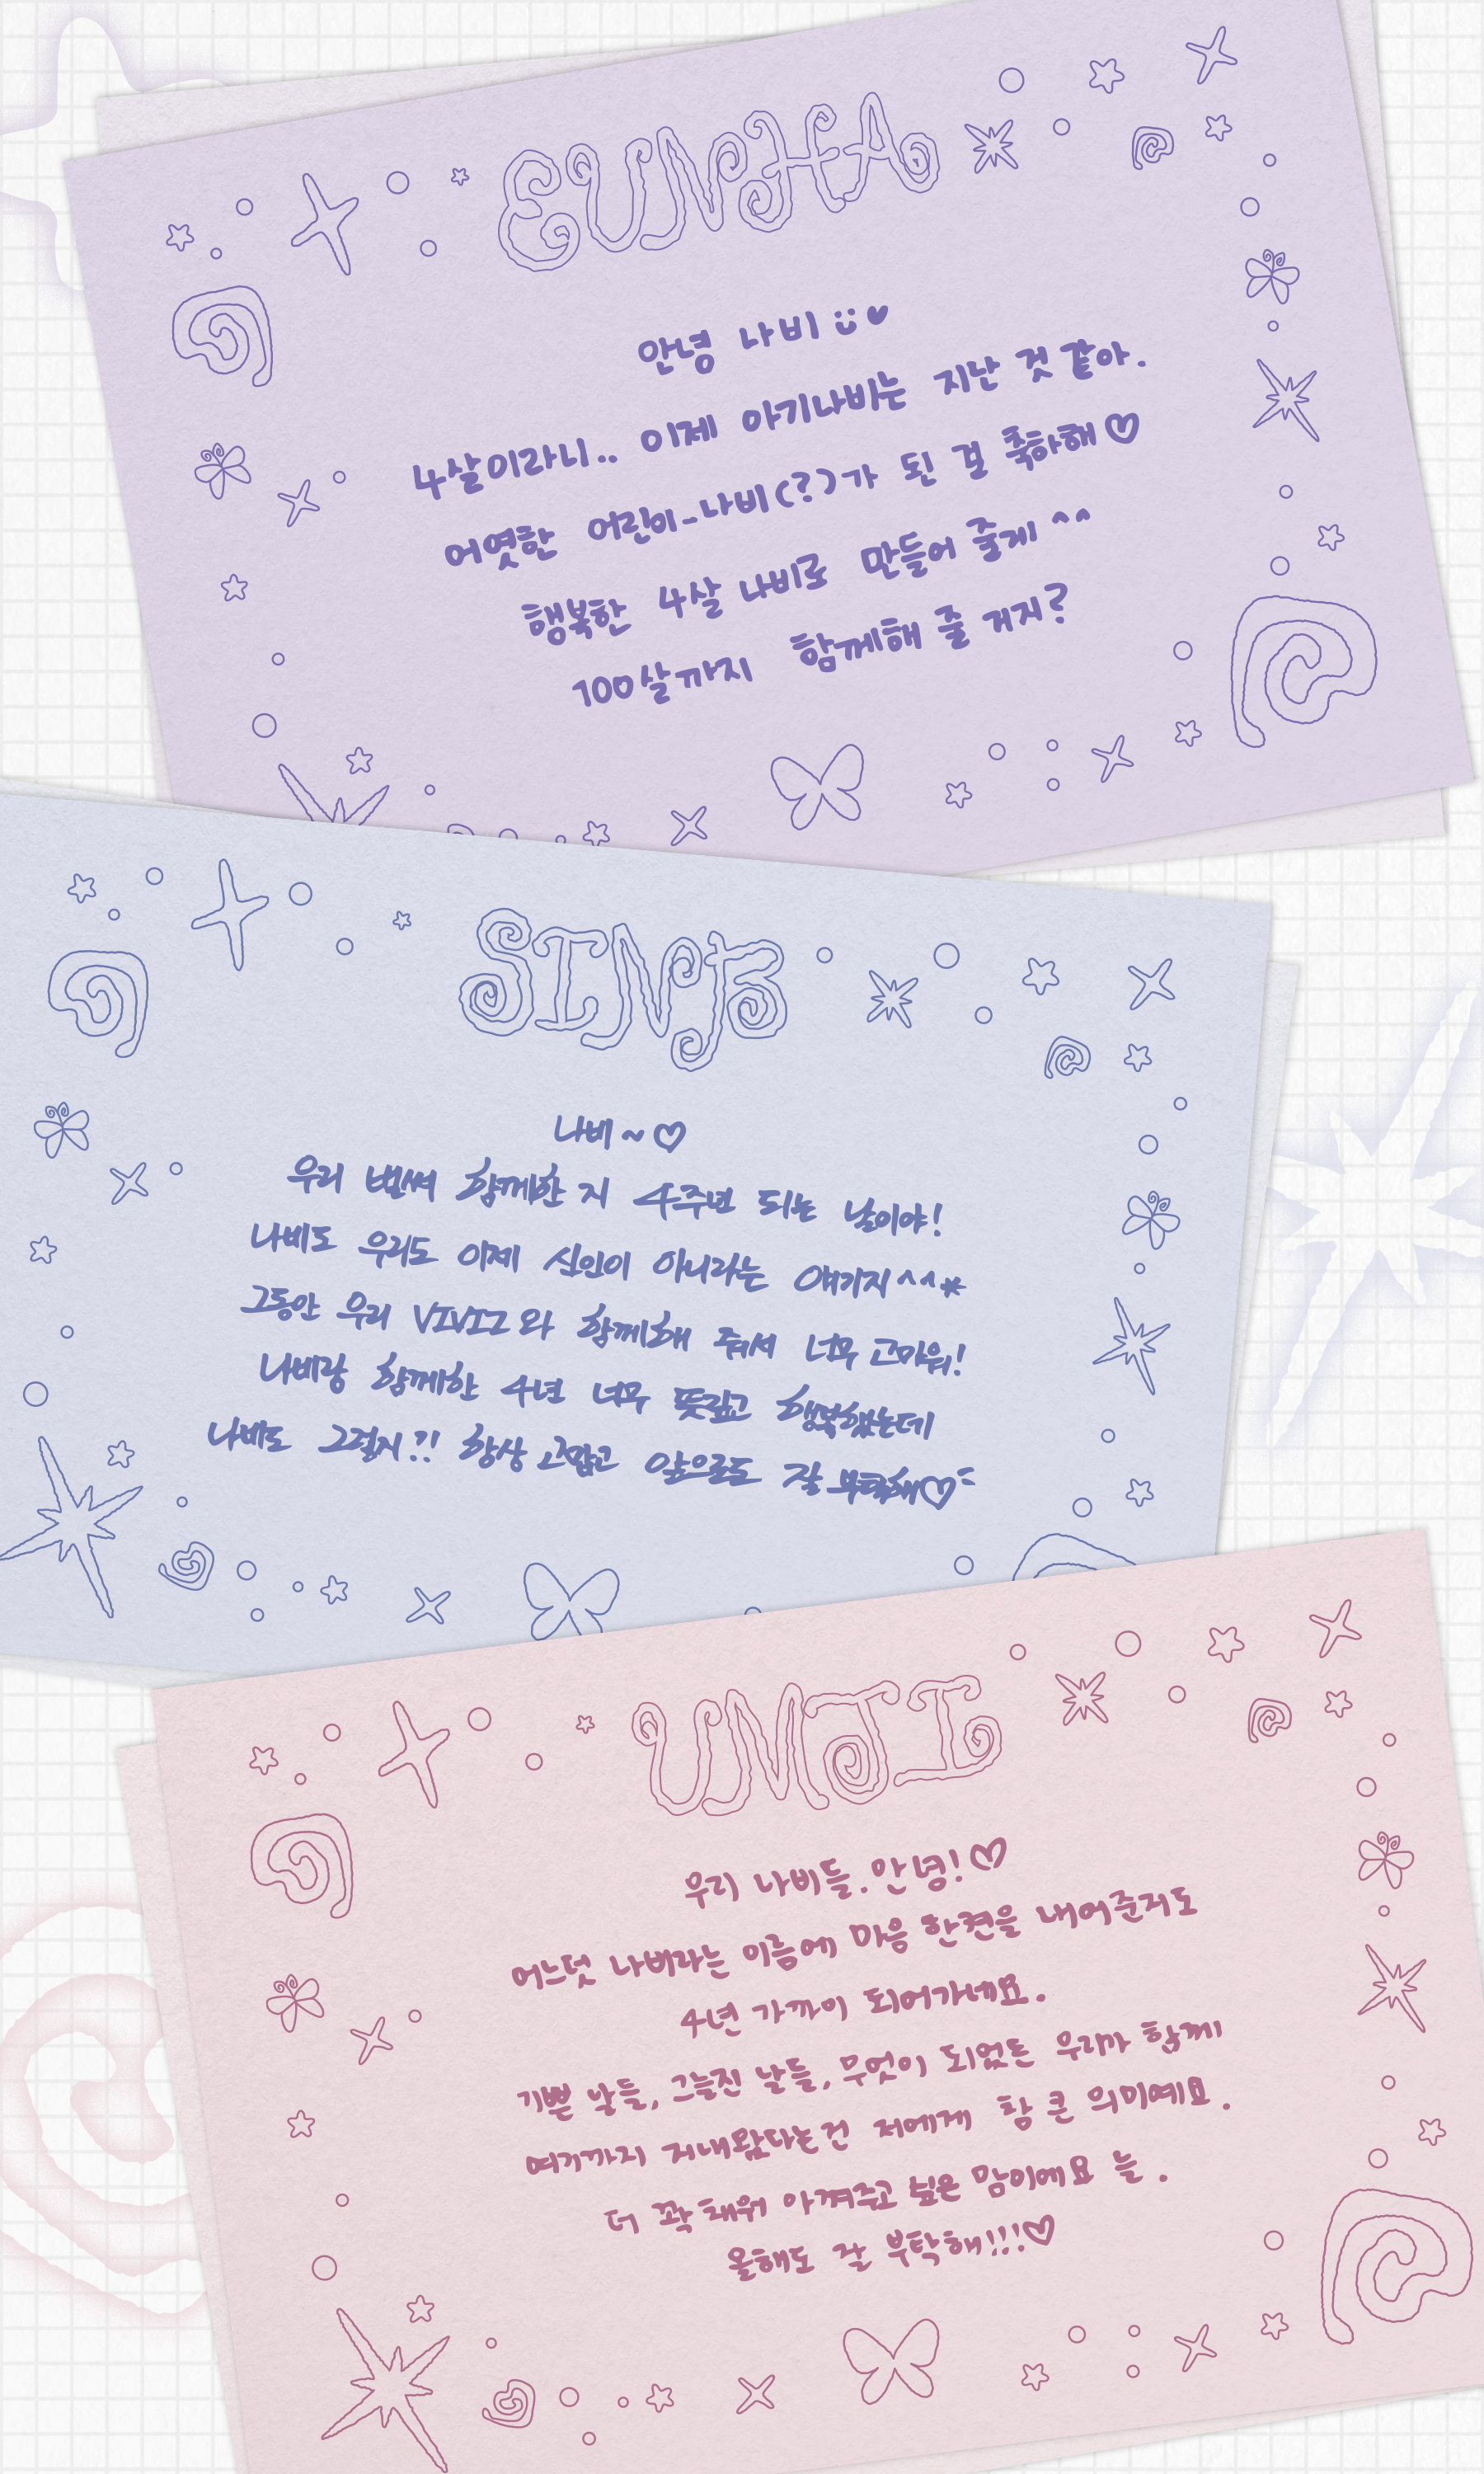 EUNHA
안녕 나비 ♥
4살이라니.. 이제 아기나비는 지난 것 같아.
어엿한 어린이-나비(?)가 된 걸 축하해♡
행복한 4살 나비로 만들어 줄게 ^^
100살까지 함께해 줄 거지?
SINB
나비~♡
우리 벌써 함께한 지 4주년 되는 날이야!
나비도 우리도 이제 신인이 아니라는 얘기지^^*
그동안 우리 VIVIZ와 함께해 줘서 너무 고마워!
나비랑 함께한 4년 너무 뜻깊고 행복했는데
나비도 그렇지?! 항상 고맙고 앞으로도 잘 부탁해♡
UMJI
우리 나비들. 안녕!♡
어느덧 나비라는 이름에 마음 한켠을 내어준지도
4년 가까이 되어가네요.
기쁜 날들, 그늘진 날들, 무엇이 되었든 우리가 함께
여기까지 지내왔다는건 저에게 참 큰 의미예요.
더 꽉 채워 아껴주고 싶은 맘이에요 늘.
올해도 잘 부탁해!!!♡